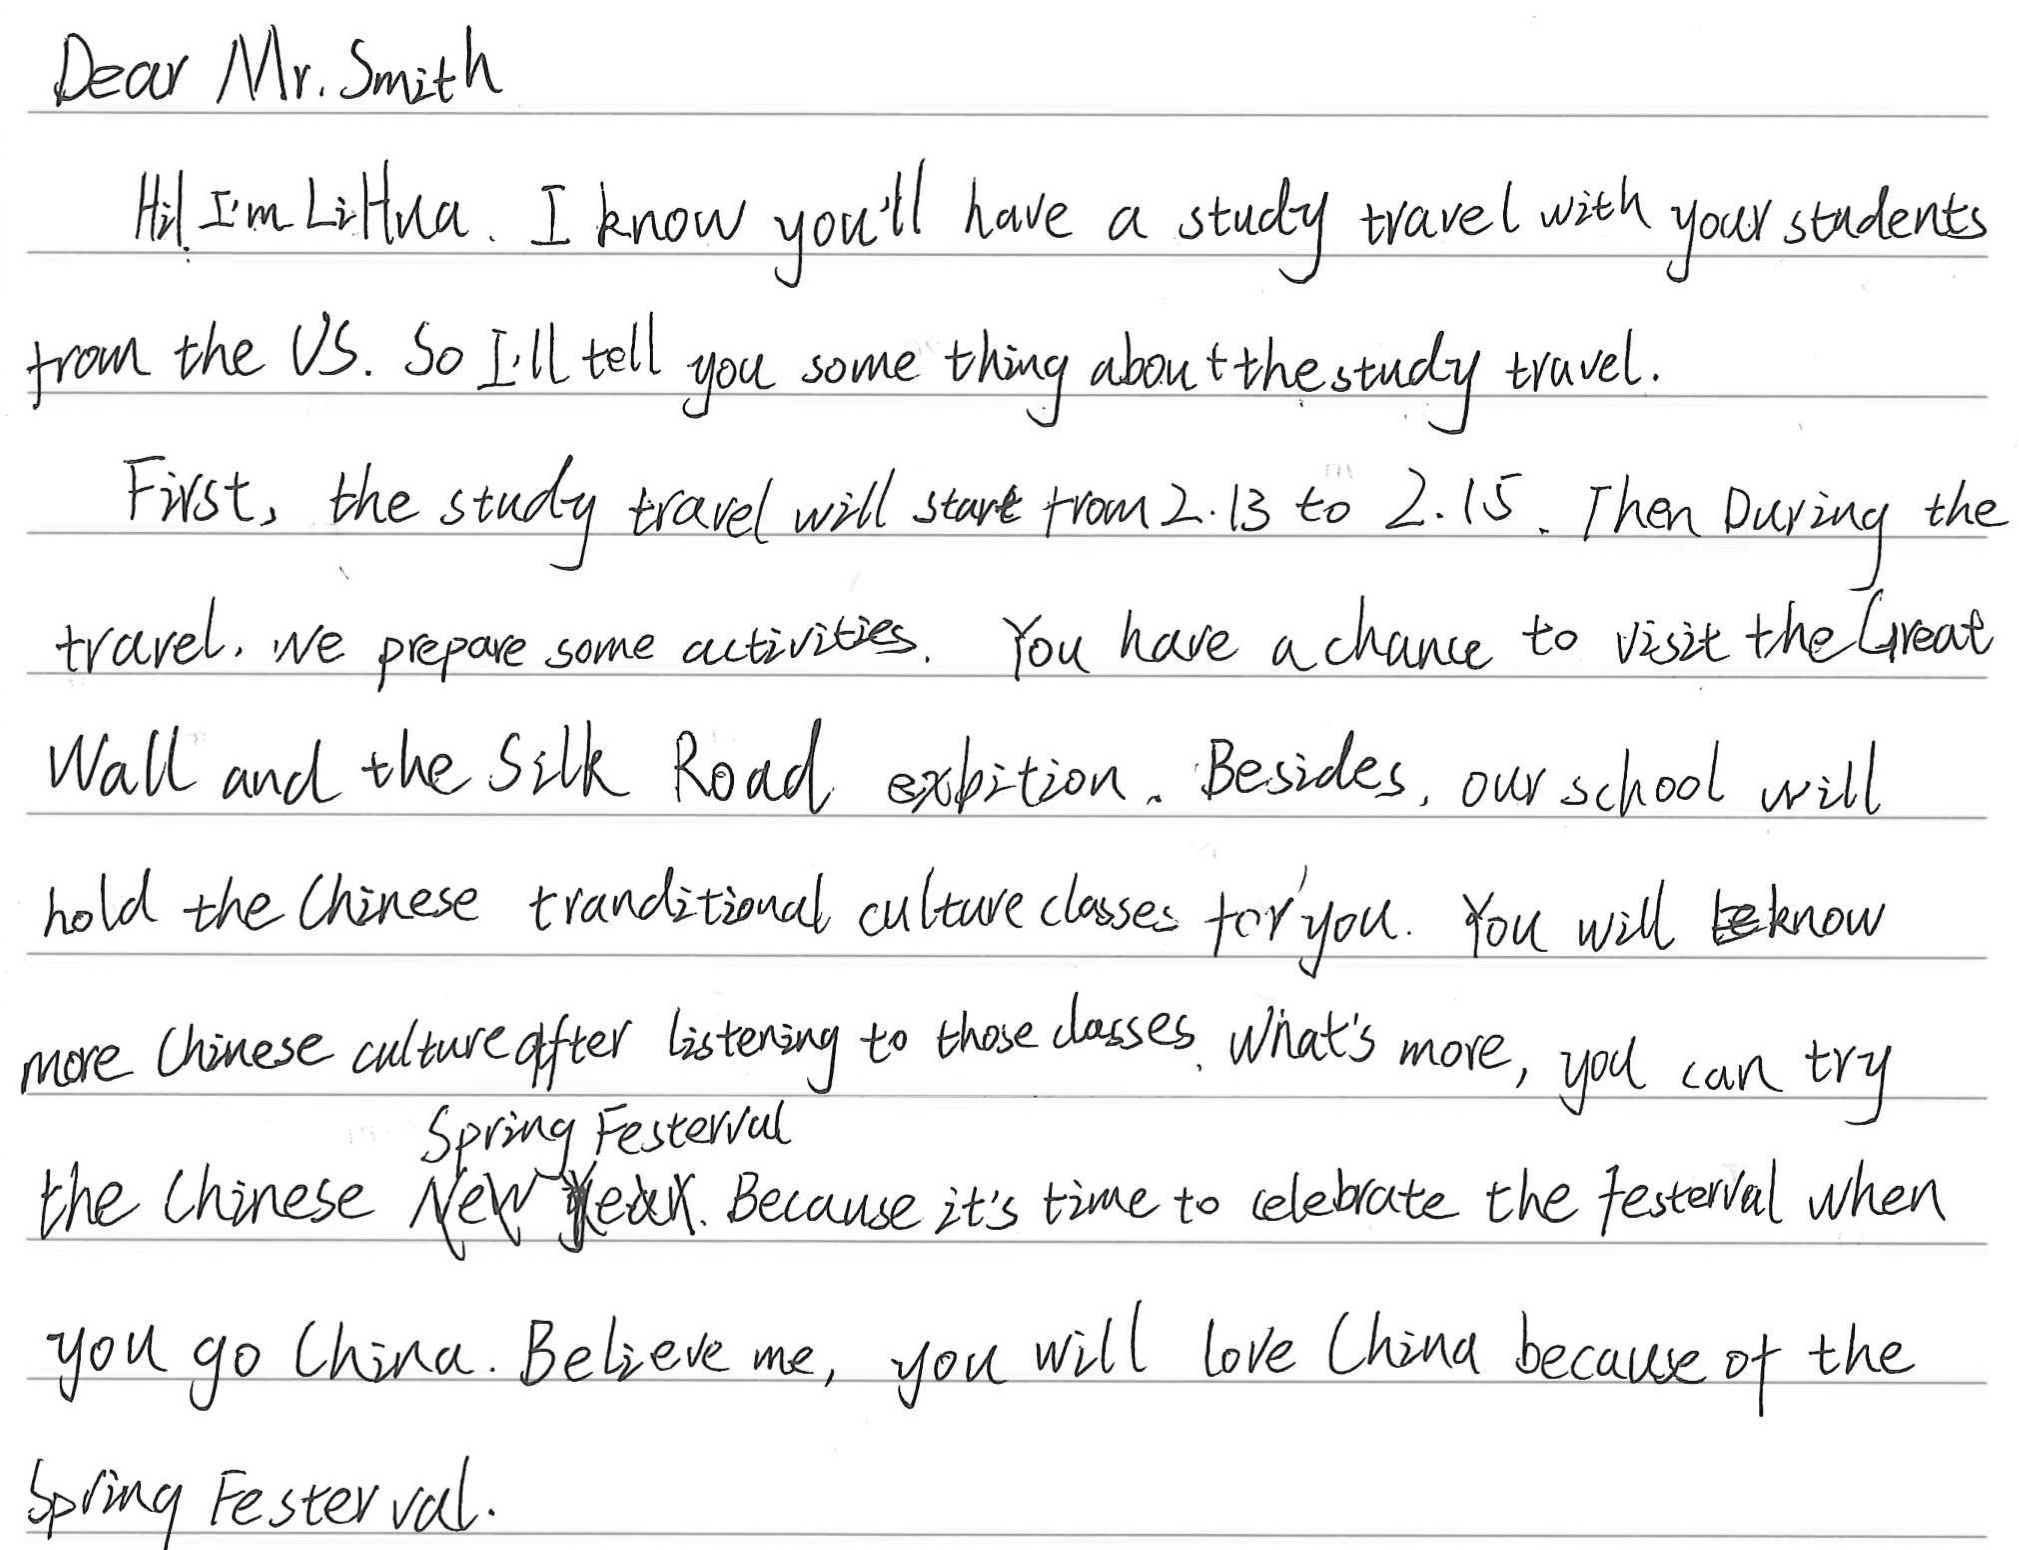 Dear Mr. Smith
Hi! I'm LiHua. I know you'll have a study travel with your students
from the US. So I'll tell you some thing about the study travel.
First, the study travel will start from 2.13 to 2.15. Then During the
travel. We prepare some activities. You have a chance to visit the Great
Wall and the Silk Road exbition. Besides, our school will
hold the Chinese tranditional culture classes for you. You will know
more Chinese culture after listening to those classes. What's more, you can try
Spring Festerval
the Chinese New Year. Because it's time to celebrate the festerval when
you go China. Believe me, you will love China because of the
Spring Festerval.